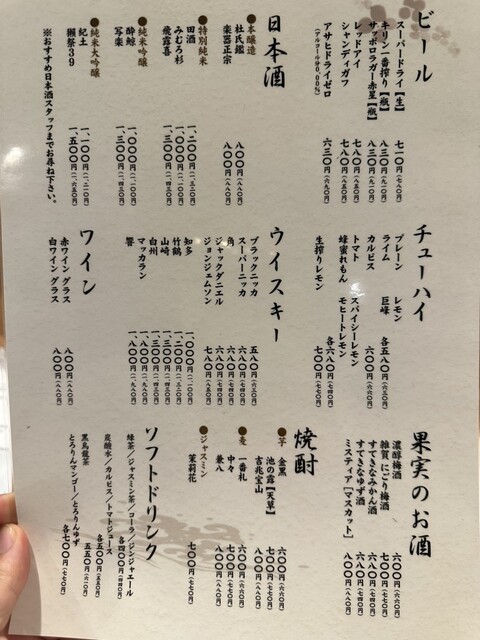 ビール
スーパードライ【生】 七一〇円(七八〇円)
キリン一番搾り【瓶】 八三〇円(九一〇円)
サッポロラガー赤星【瓶】 八三〇円(九一〇円)
レッドアイ 七八〇円(八五〇円)
シャンディガフ 七八〇円(八五〇円)
アサヒドライゼロ 六三〇円(六九〇円)
(アルコール分0.00%)
日本酒
●本醸造
杜氏鑑 八〇〇円(八八〇円)
楽器正宗 八〇〇円(八八〇円)
●特別純米
田酒 一、二〇〇円(一、三二〇円)
みむろ杉 一、〇〇〇円(一、一〇〇円)
飛露喜 一、三〇〇円(一、四三〇円)
●純米吟醸
酔鯨 一、〇〇〇円(一、一〇〇円)
写楽 一、三〇〇円(一、四三〇円)
●純米大吟醸
紀土 一、一〇〇円(一、二一〇円)
獺祭39 一、五〇〇円(一、六五〇円)
※おすすめ日本酒スタッフまでお尋ね下さい。
チューハイ
プレーン レモン
ライム 巨峰 各五八〇円(六三〇円)
カルピス 六〇〇円(六六〇円)
トマト スパイシーレモン
蜂蜜れもん モヒートレモン 各六八〇円(七四〇円)
生搾りレモン 七〇〇円(七七〇円)
ウイスキー
ブラックニッカ 五八〇円(六三〇円)
スーパーニッカ 六八〇円(七四〇円)
角 六八〇円(七四〇円)
ジャックダニエル 六八〇円(七四〇円)
ジョンジェムソン 七八〇円(八五〇円)
知多 一、〇〇〇円(一、一〇〇円)
竹鶴 一、二〇〇円(一、三二〇円)
山崎 一、三〇〇円(一、四三〇円)
白州 一、三〇〇円(一、四三〇円)
マッカラン 一、八〇〇円(一、九八〇円)
響 一、八〇〇円(一、九八〇円)
ワイン
赤ワイン グラス 八〇〇円(八八〇円)
白ワイン グラス 八〇〇円(八八〇円)
果実のお酒
濃醇梅酒 六〇〇円(六六〇円)
雑賀 にごり梅酒 七〇〇円(七七〇円)
すてきなみかん酒 六八〇円(七四〇円)
すてきなゆず酒 六八〇円(七四〇円)
ミスティア【マスカット】 八〇〇円(八八〇円)
焼酎
●芋
金黒 六〇〇円(六六〇円)
池の露【天草】 七〇〇円(七七〇円)
吉兆宝山 八〇〇円(八八〇円)
●麦
一番札 六〇〇円(六六〇円)
中々 七〇〇円(七七〇円)
兼八 八〇〇円(八八〇円)
●ジャスミン
茉莉花 七〇〇円(七七〇円)
ソフトドリンク
緑茶/ジャスミン茶/コーラ/ジンジャエール 各四〇〇円(四四〇円)
炭酸水/カルピス/トマトジュース 各五〇〇円(五五〇円)
黒烏龍茶 五五〇円(六一〇円)
とろりんマンゴー/とろりんゆず 各七〇〇円(七七〇円)